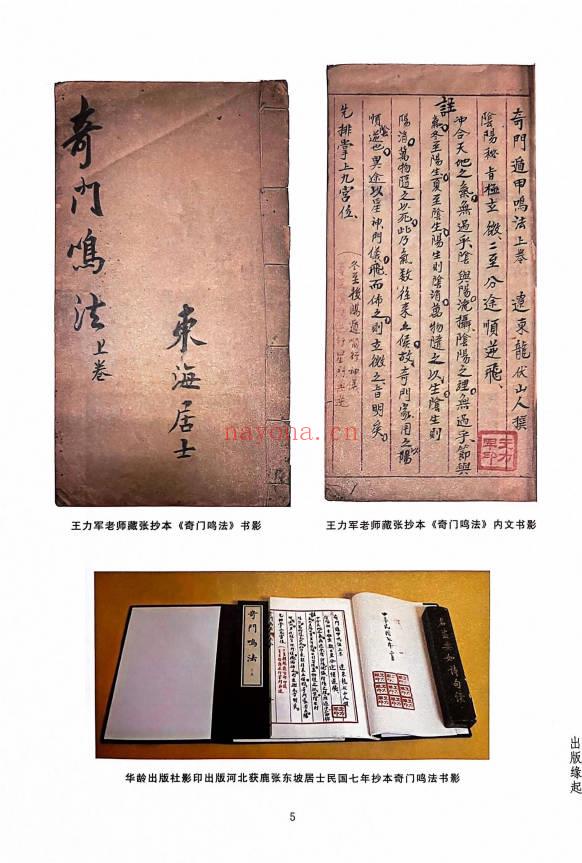 奇門鳴法上卷
東海居士
奇門遁甲鳴法上卷　遼東龍伏山人撰
陰陽秘旨極玄微二至分途順逆飛
冲合天地之氣無過乎陰與陽流攝陰陽之理無過乎節與
註
氣冬至陽生夏至陰生陽生則陰消萬物隨之以生陰生則
陽消萬物隨之以死此乃氣数往来之候故奇門家用之陽
順陰逆也異途以星神門儀飛而佈之則玄微之旨明矣
先排掌上九宫位
nayona.cn
王力军老师藏张抄本《奇门鸣法》书影
王力军老师藏张抄本《奇门鸣法》内文书影
奇門鳴法
華民國七年
华龄出版社影印出版河北获鹿张东坡居士民国七年抄本奇门鸣法书影
出版缘起
5